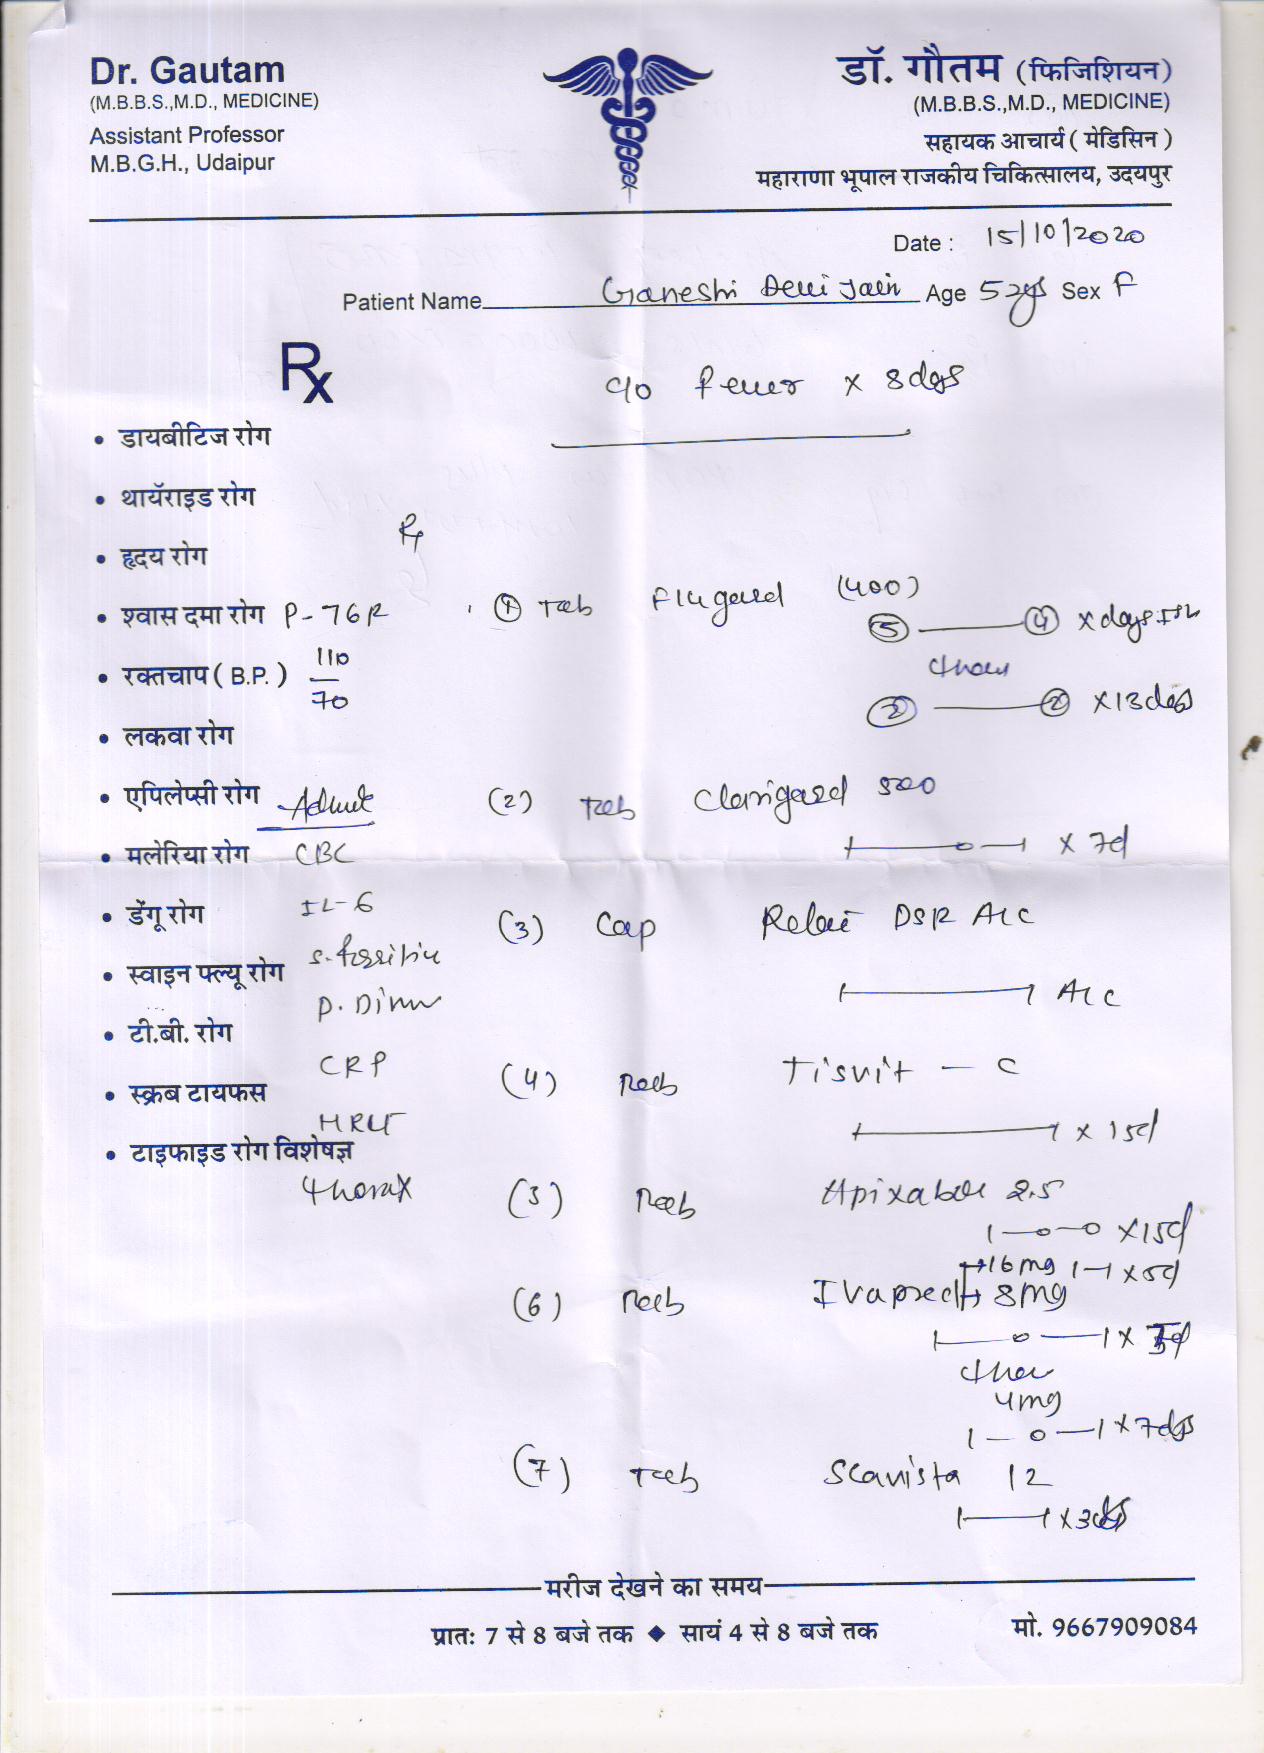 Dr. Gautam
(M.B.B.S.,M.D., MEDICINE)
Assistant Professor
M.B.G.H., Udaipur
डॉ. गौतम (फिजिशियन)
(M.B.B.S.,M.D., MEDICINE)
सहायक आचार्य ( मेडिसिन )
महाराणा भूपाल राजकीय चिकित्सालय, उदयपुर
Date : 15/10/2020
Patient Name Ganeshi Devi Jain Age 52 yrs Sex F
Rx
c/o fever x 8 days
• डायबीटिज रोग
• थायॅराइड रोग
• हृदय रोग
• श्वास दमा रोग
• रक्तचाप ( B.P. )
• लकवा रोग
• एपिलेप्सी रोग
• मलेरिया रोग
• डेंगू रोग
• स्वाइन फ्ल्यू रोग
• टी.बी. रोग
• स्क्रब टायफस
• टाइफाइड रोग विशेषज्ञ
P - 76
110
70
Admit
CBC
IL-6
CRP
Thorax
Rx
(1) Tab Flugard (400)
x 13 days
(2) Tab Clarigard 500
x 7d
(3) Cap DSR AC
AC
(4) Tab Tisvit - C
x 15d
Tab Apixaban 2.5
1-0-0 x 15d
(6) Tab Ivapred
16 mg 1-1 x 5d
8mg
1-0-1 x
then
4mg
1-0-1 x 7 days
(7) Tab Scavista 12
x 3 days
मरीज देखने का समय
प्रातः 7 से 8 बजे तक ◆ सायं 4 से 8 बजे तक
मो. 9667909084